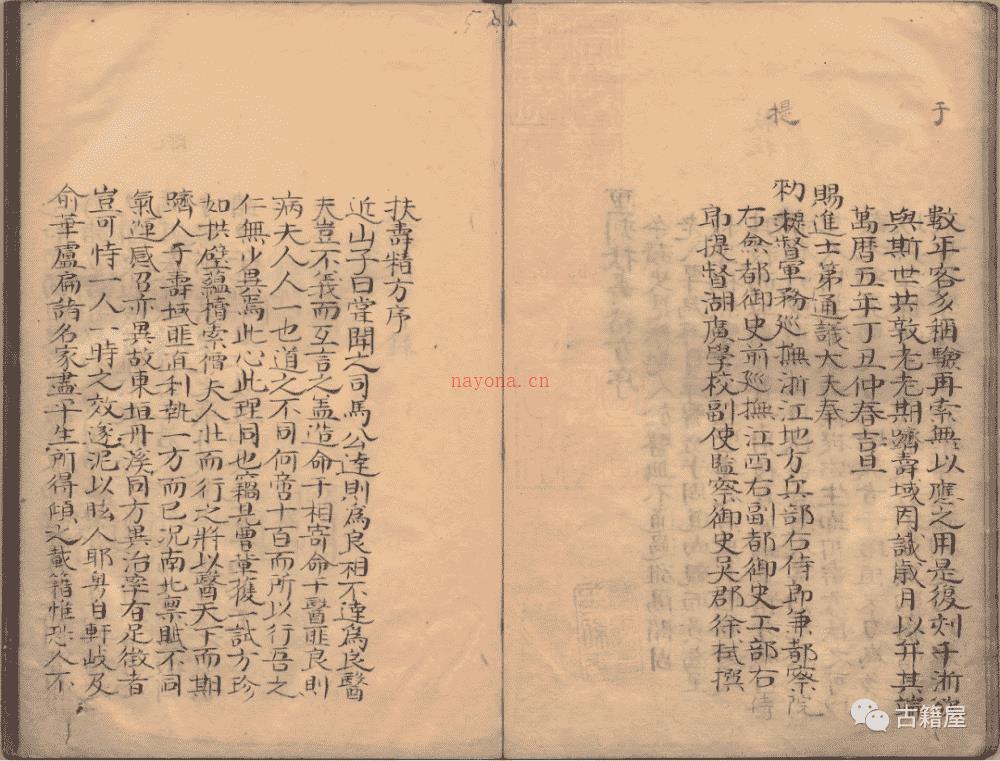 于
數年客多稱驗再索無以應之用是復刻于浙
與斯世共敦老老期躋壽域因識歲月以弁其端
萬曆五年丁丑仲春吉旦
賜進士第通議大夫奉
提
勑提督軍務廵撫浙江地方兵部右侍郎兼都察院
右僉都御史前廵撫江西右副都御史工部右侍
郎提督湖廣學校副使監察御史吳郡徐栻撰
扶壽精方序
近山子曰嘗聞之司馬公達則為良相不達為良醫
夫豈不義而互言之盖造命于相寄命于醫匪良則
病夫人人一也道之不同何啻十百而所以行吾之
仁無少異焉此心此理同也竊見曹輩獲一試方珍
如拱璧蘊櫝索償夫人壯而行之將以醫天下而期
躋人于壽域匪直利執一方而已況南北禀賦不同
氣運感召亦異故東垣丹溪同方異治率有足徵者
豈可恃一人一時之效遂泥以眩人耶粤自軒岐及
俞華盧扁諸名家盡平生所得傾之載籍惟恐人不
nayona.cn
古籍屋